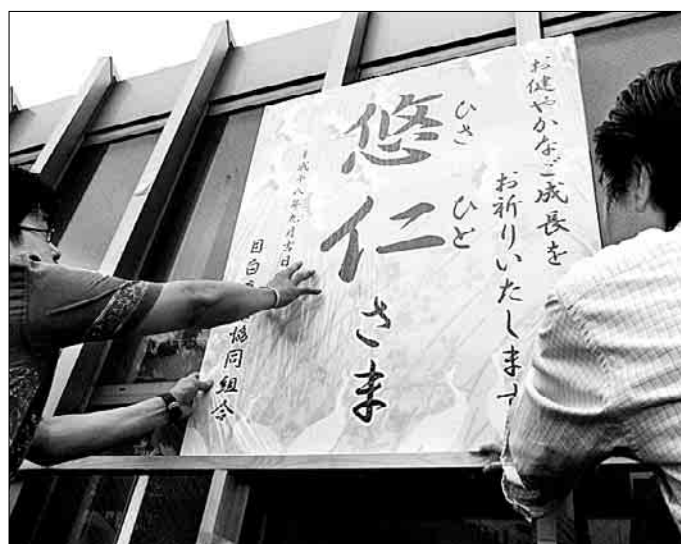 お健やかなご成長を
お祈りいたします
ひさ ひと
悠仁さま
平成十八年九月吉日
目白
協同組合